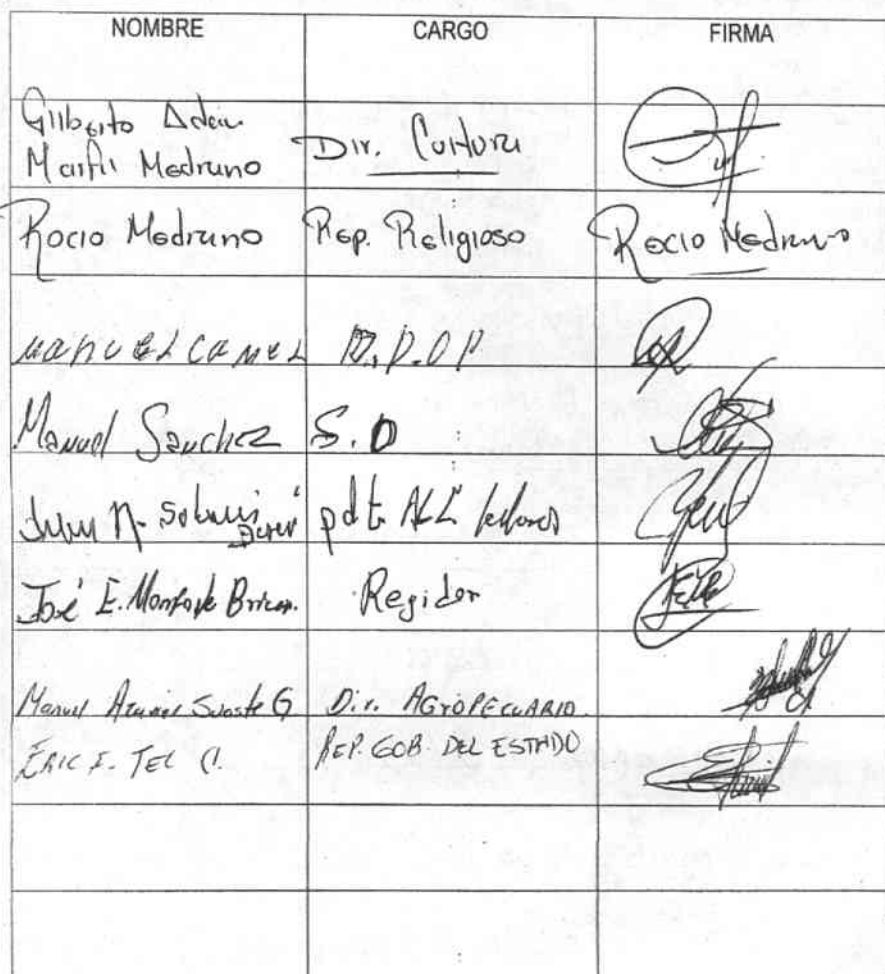 NOMBRE CARGO FIRMA
Gilberto Adein
Marfil Medrano Dir. Cultura
Rocio Medrano Rep. Religioso Rocio Medrano
MANUEL CAMEL P.D.O P
Manuel Sanchez S. D
pdt.
José E. Monforte Regidor
Manuel Suaste G. Dir. AGROPECUARIO
ERIC F. TEC C. REP. GOB. DEL ESTADO